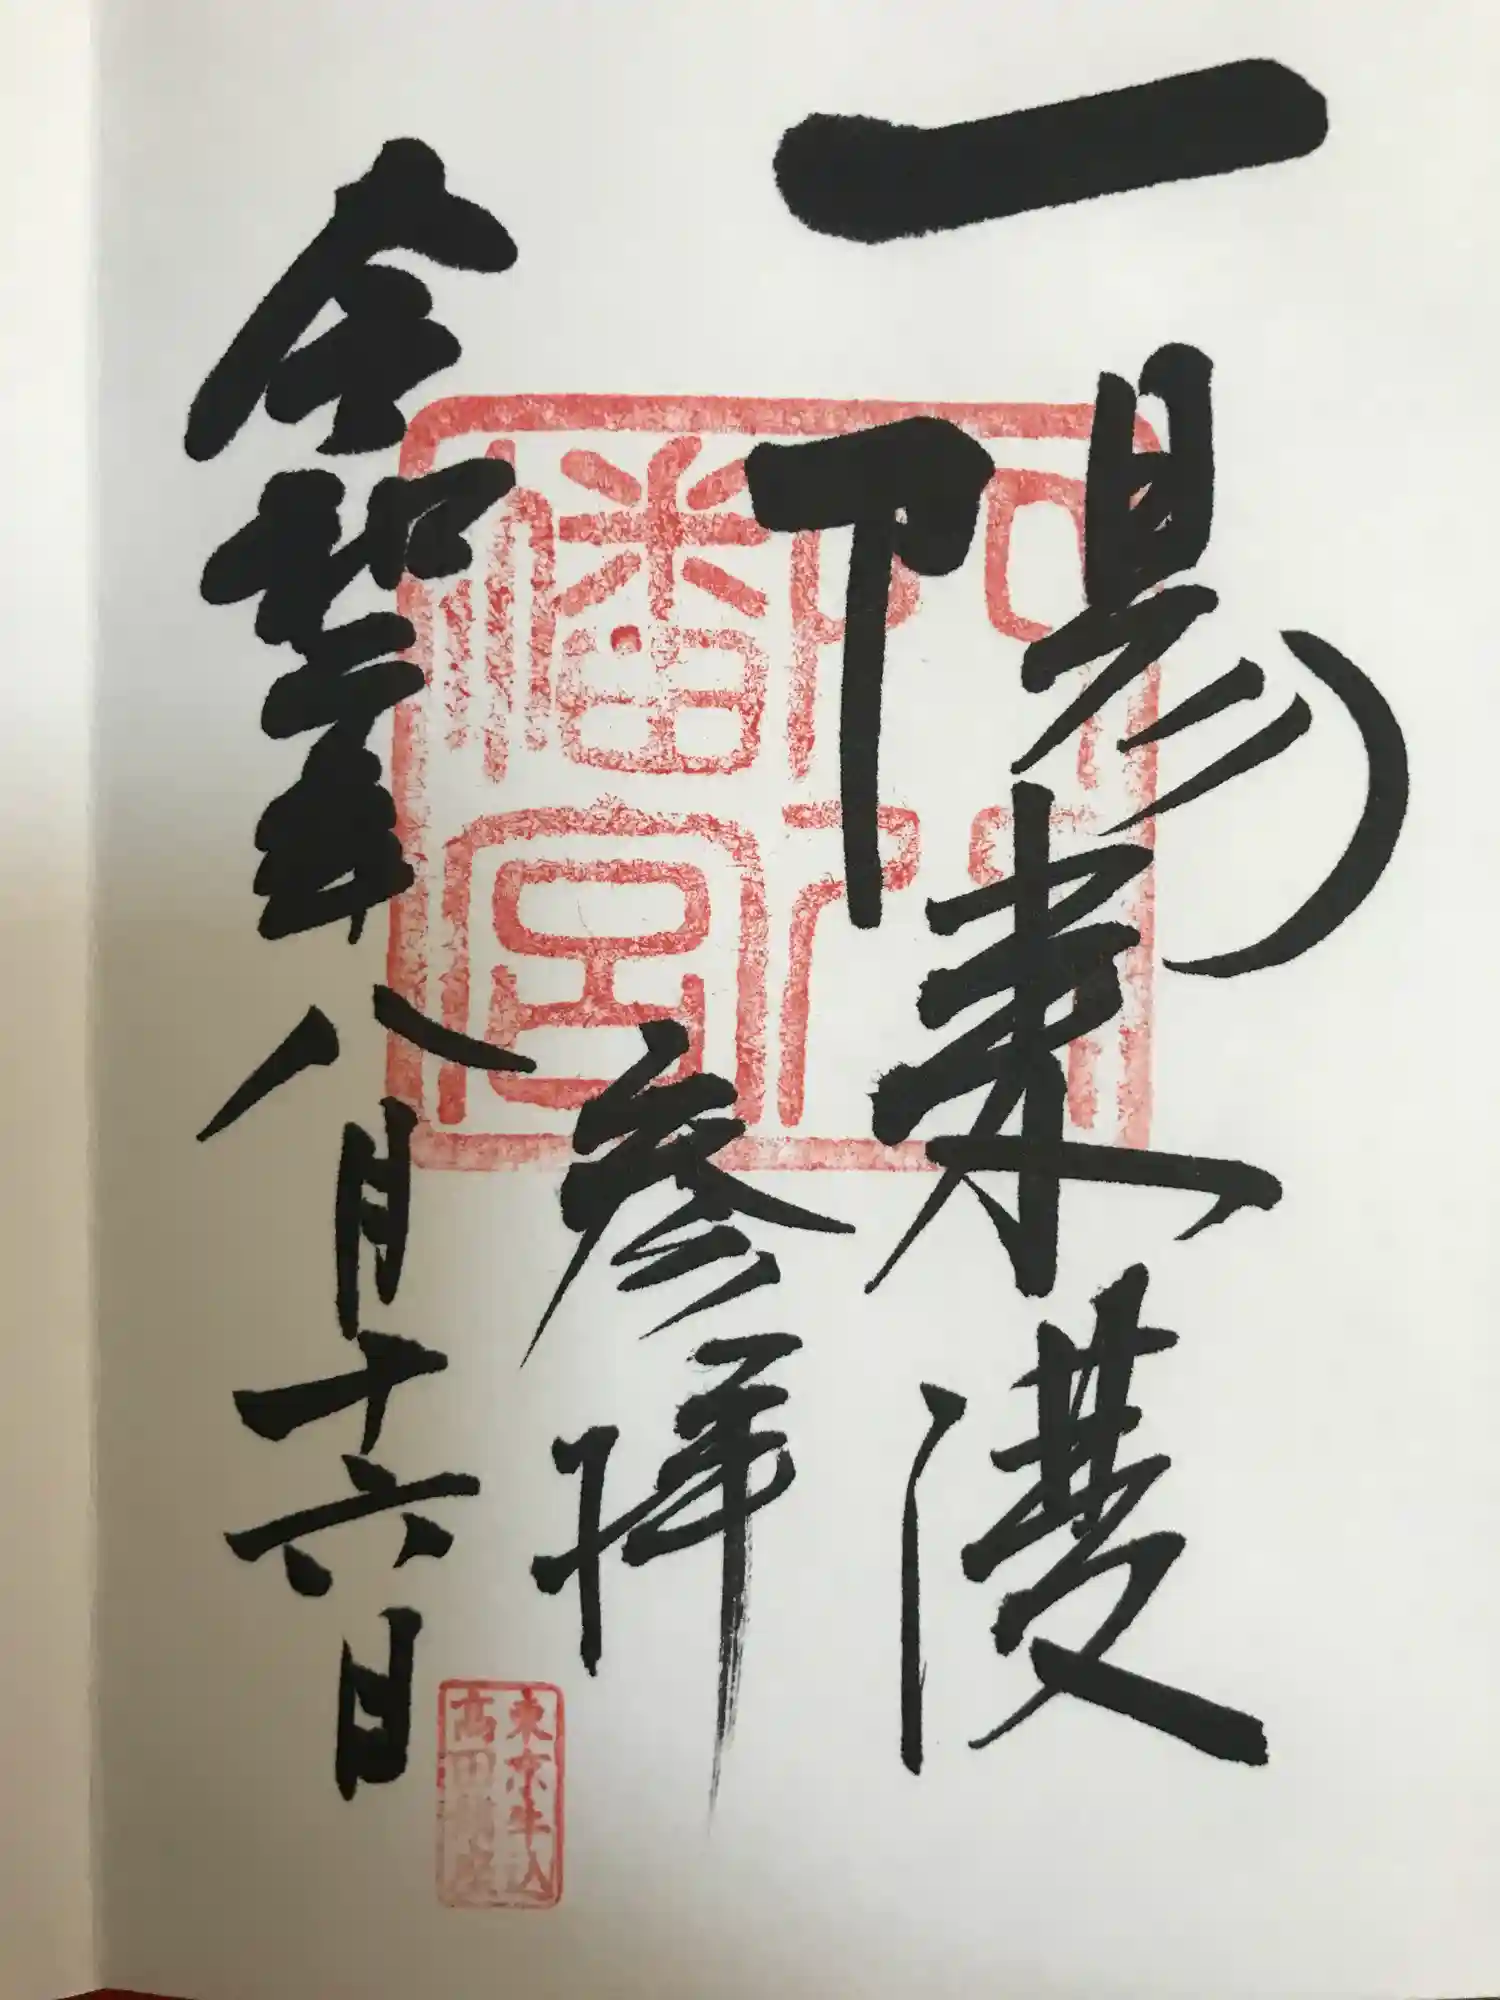 一陽来復
参拝
令和二年八月十六日
幡宮
東京牛込
高田鎮座